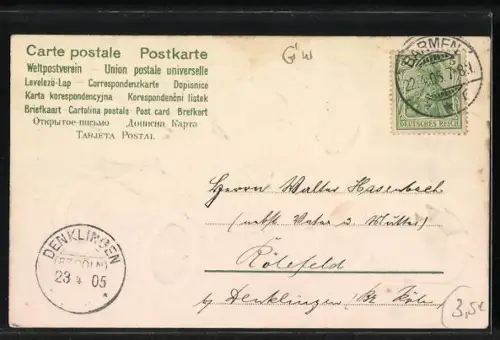 Carte postale Postkarte
Weltpostverein - Union postale universelle
Levelezö-Lap - Correspondenzkarte Dopisnice
Karta korespondencyjna Korespondenční lístek
Briefkaart - Cartolina postale Post card Brefkort
Открытое-письмо Дописна Карта
TARJETA POSTAL
G W
BARMEN
22.4.05 7-8V
DEUTSCHES REICH
Herrn Walter Hasenbach
(nebst Vater u Mutter)
Rölefeld
by Denklingen Bz Köln
DENKLINGEN
(BZ CÖLN)
23 4 05
3,5